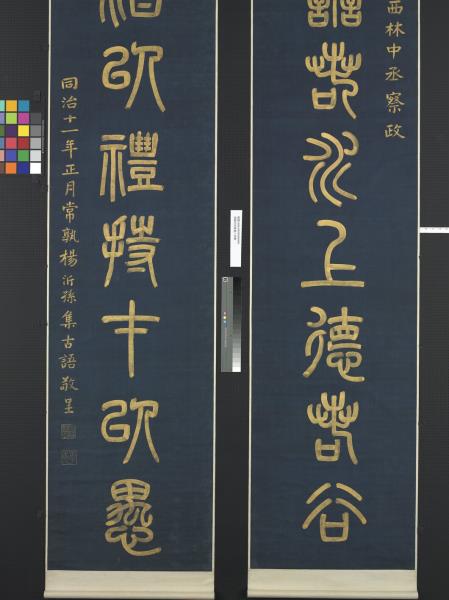 西林中丞察政
善若水上德若谷
以禮持才以愚
同治十一年正月常孰楊沂孫集古語敬呈